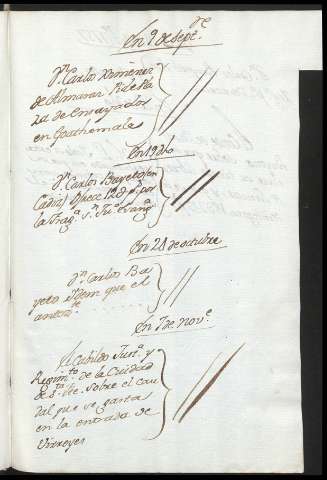 En 9 de Septre
Dn. Carlos Ximenez
de Almaraz Pide Pla
za de Ensayador
en Goathemala
En 19 dho
Dn. Carlos Bayeto (en
Cadiz) Ofrece 12 ps. por
la Frag.a Sn. Ju.o Evang.a
En 21 de octubre
Dn. Carlos Ba
yeto Idem que el
antedte
En 7 de Nove
El Cabildo Just.a y
Regimto. de la Ciudad
de Sta. Fee. Sobre el cau
dal que se gasta
en la entrada de
Virreyes